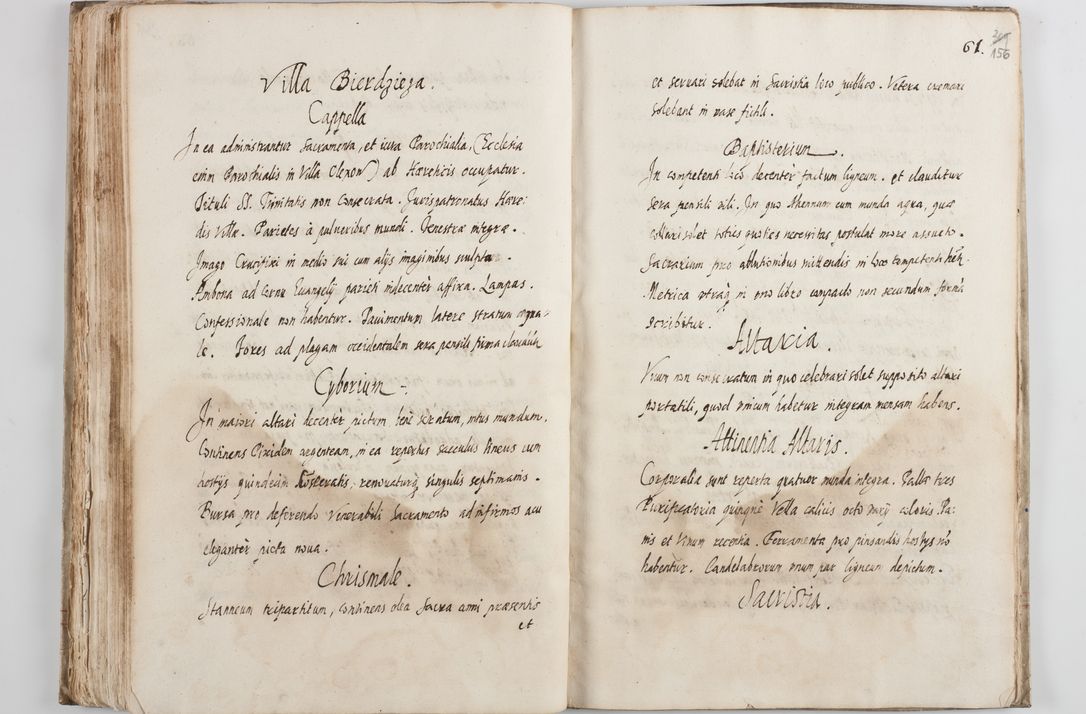 Villa Bierdzieza.
Cappella
In ea administrantur Sacramenta, et iura Parochialia, (Ecclesia
enim Parochialis in Villa Olexow) ab Hæreticis occupatur.
Tituli SS. Trinitatis non Consecrata. Jurispatronatus Hære:
dis Villæ. Parietes à pulueribus mundi. Fenestræ integræ.
Imago Crucifixi in medio sui cum alijs imaginibus sculpta.
Ambona ad Cornu Euangelij parieti indecentèr affixa. Lampas.
Confessionale non habentur. Pauimentum latere stratum
le. Fores ad plagam occidentalem sera pensili firma
Cyborium.
In maiori altari decentèr pictum benè seratum, intus mundum.
Continens Pixidem argenteam, in ea repertus sacculus lineus cum
hostijs quindecim Consecratis, renouaturq singulis septimanis.
Bursa pro deferendo Venerabili Sacramento ad infirmos acu
eleganter picta noua.
Chrismale.
Stanneum tripartitum, continens olea Sacra anni præsentis
et
61. 156
et seruari solebat in Sacristia loco publico. Vetera cremari
solebant in vase fictili.
Baptisterium.
In competenti loco decentèr factum ligneum. et clauditur
sera pensili vili. In quo Ahennum cum munda aqua, quæ
solet toties quoties necessitas postulat more assueto.
Sacrarium pro ablutionibus mittendis in loco competenti
Metrica vtraq in vno libro compacto non secundum formā
scribitur.
Altaria.
Vnum non consecratum in quo celebrari solet supposito altari
portatili, quod vnicum habetur integram mensam habens.
Attinentia Altaris.
Corporalia sunt reperta quatuor munda integra. Pallæ tres
Purificatoria quinque Vella calicis octo varij coloris Pa:
nis et Vinum recentia. Ferramenta pro pinsandis hostijs nō
habentur. Candelabrorum vnum par ligneum depictum.
Sacristia.